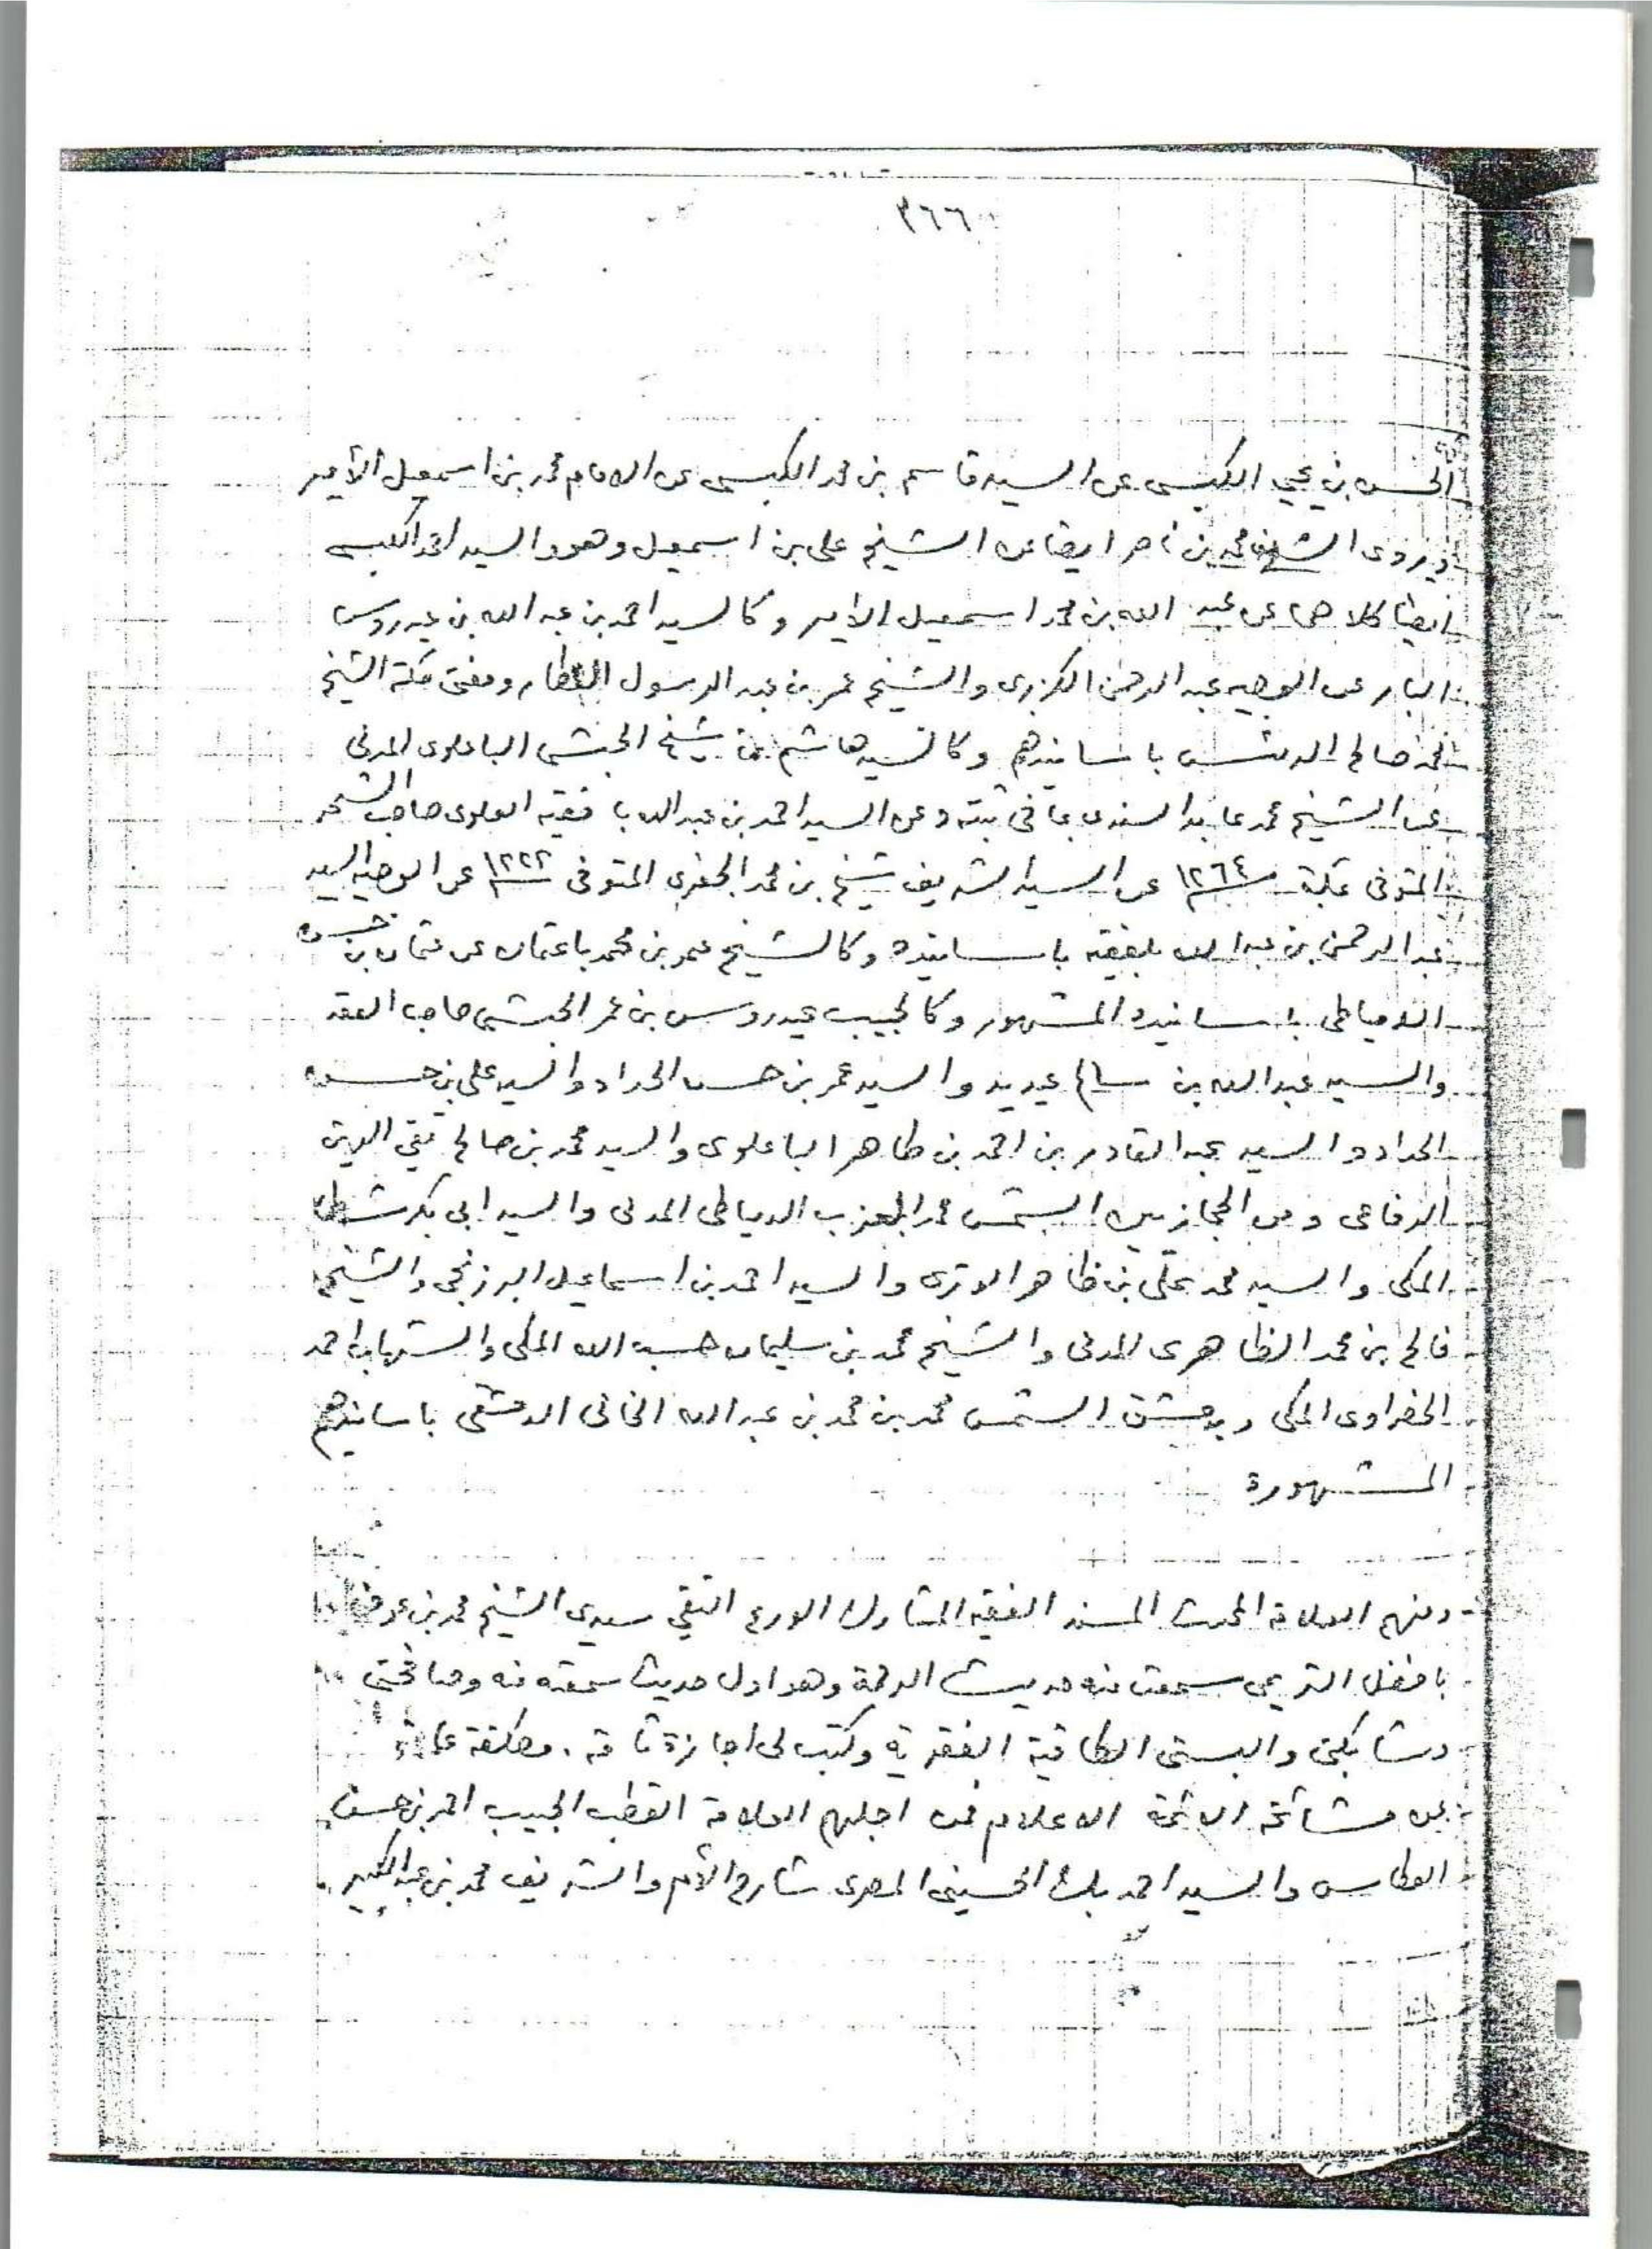 ٣٦٦
الحسن بن يحيى الكبسي عن السيد قاسم بن محمد الكبسي عن الامام محمد بن اسمعيل الأمير
ويروى الشريف محمد بن ناصر ايضا عن الشيخ على بن اسمعيل وهو والسيد احمد الكبسي
ايضا كلاهما عن عبد الله بن محمد اسمعيل الامير وكالسيد احمد بن عبد الله بن عيدروس
البار عن الوجيه عبد الرحمن الكزبرى والشيخ عمر بن عبد الرسول العطار ومفتى مكة الشيخ
محمد صالح الريس باسانيدهم وكالسيد هاشم بن شيخ الحبشى الباعلوى المدنى
عن الشيخ محمد عابد السندى بما فى ثبته وعن السيد احمد بن عبد الله بافقيه العلوى صاحب الشحر
المتوفى بمكة ١٢٦٤ عن السيد الشريف شيخ بن محمد الجفرى المتوفى ١٢٢٢ عن الوجيه السيد
عبد الرحمن بن عبد الله بلفقيه باسانيده وكالشيخ عمر بن محمد باعثمان عن عثمان بن حسن
الدمياطى باسانيده المشهور وكالحبيب عيدروس بن عمر الحبشى صاحب العقد
والسيد عبد الله بن سالم عيديد والسيد عمر بن حسن الحداد والسيد على بن حسن
الحداد والسيد عبد القادر بن احمد بن طاهر الباعلوى والسيد محمد بن صالح تقي الدين
الرفاعى ومن الحجازيين الشمس محمد العزب الدمياطى المدنى والسيد ابى بكر شطا
المكى والسيد محمد على بن ظاهر الوترى والسيد احمد بن اسماعيل البرزنجى والشيخ
فالح بن محمد الظاهرى المدنى والشيخ محمد بن سليمان حسب الله المكى والشهاب احمد
الحضراوى المكى وبدمشق الشمس محمد بن محمد بن عبد الله الخانى الدمشقى باسانيدهم
المشهورة
ومنهم العلامة المحدث المسند الفقيه المشارك الورع التقي سيدى الشيخ محمد بن عوض
بافضل التريمى سمعت منه حديث الرحمة وهو اول حديث سمعته منه وصافحنى
وشابكنى والبسنى الطاقية الفقرية وكتب لى اجازة تامة مطلقة عامة
عن مشائخه الائمة الاعلام فمن اجلهم العلامة القطب الحبيب احمد بن حسن
العطاس والسيد احمد بك الحسينى المصرى شارح الأم والشريف محمد بن عبد الكبير